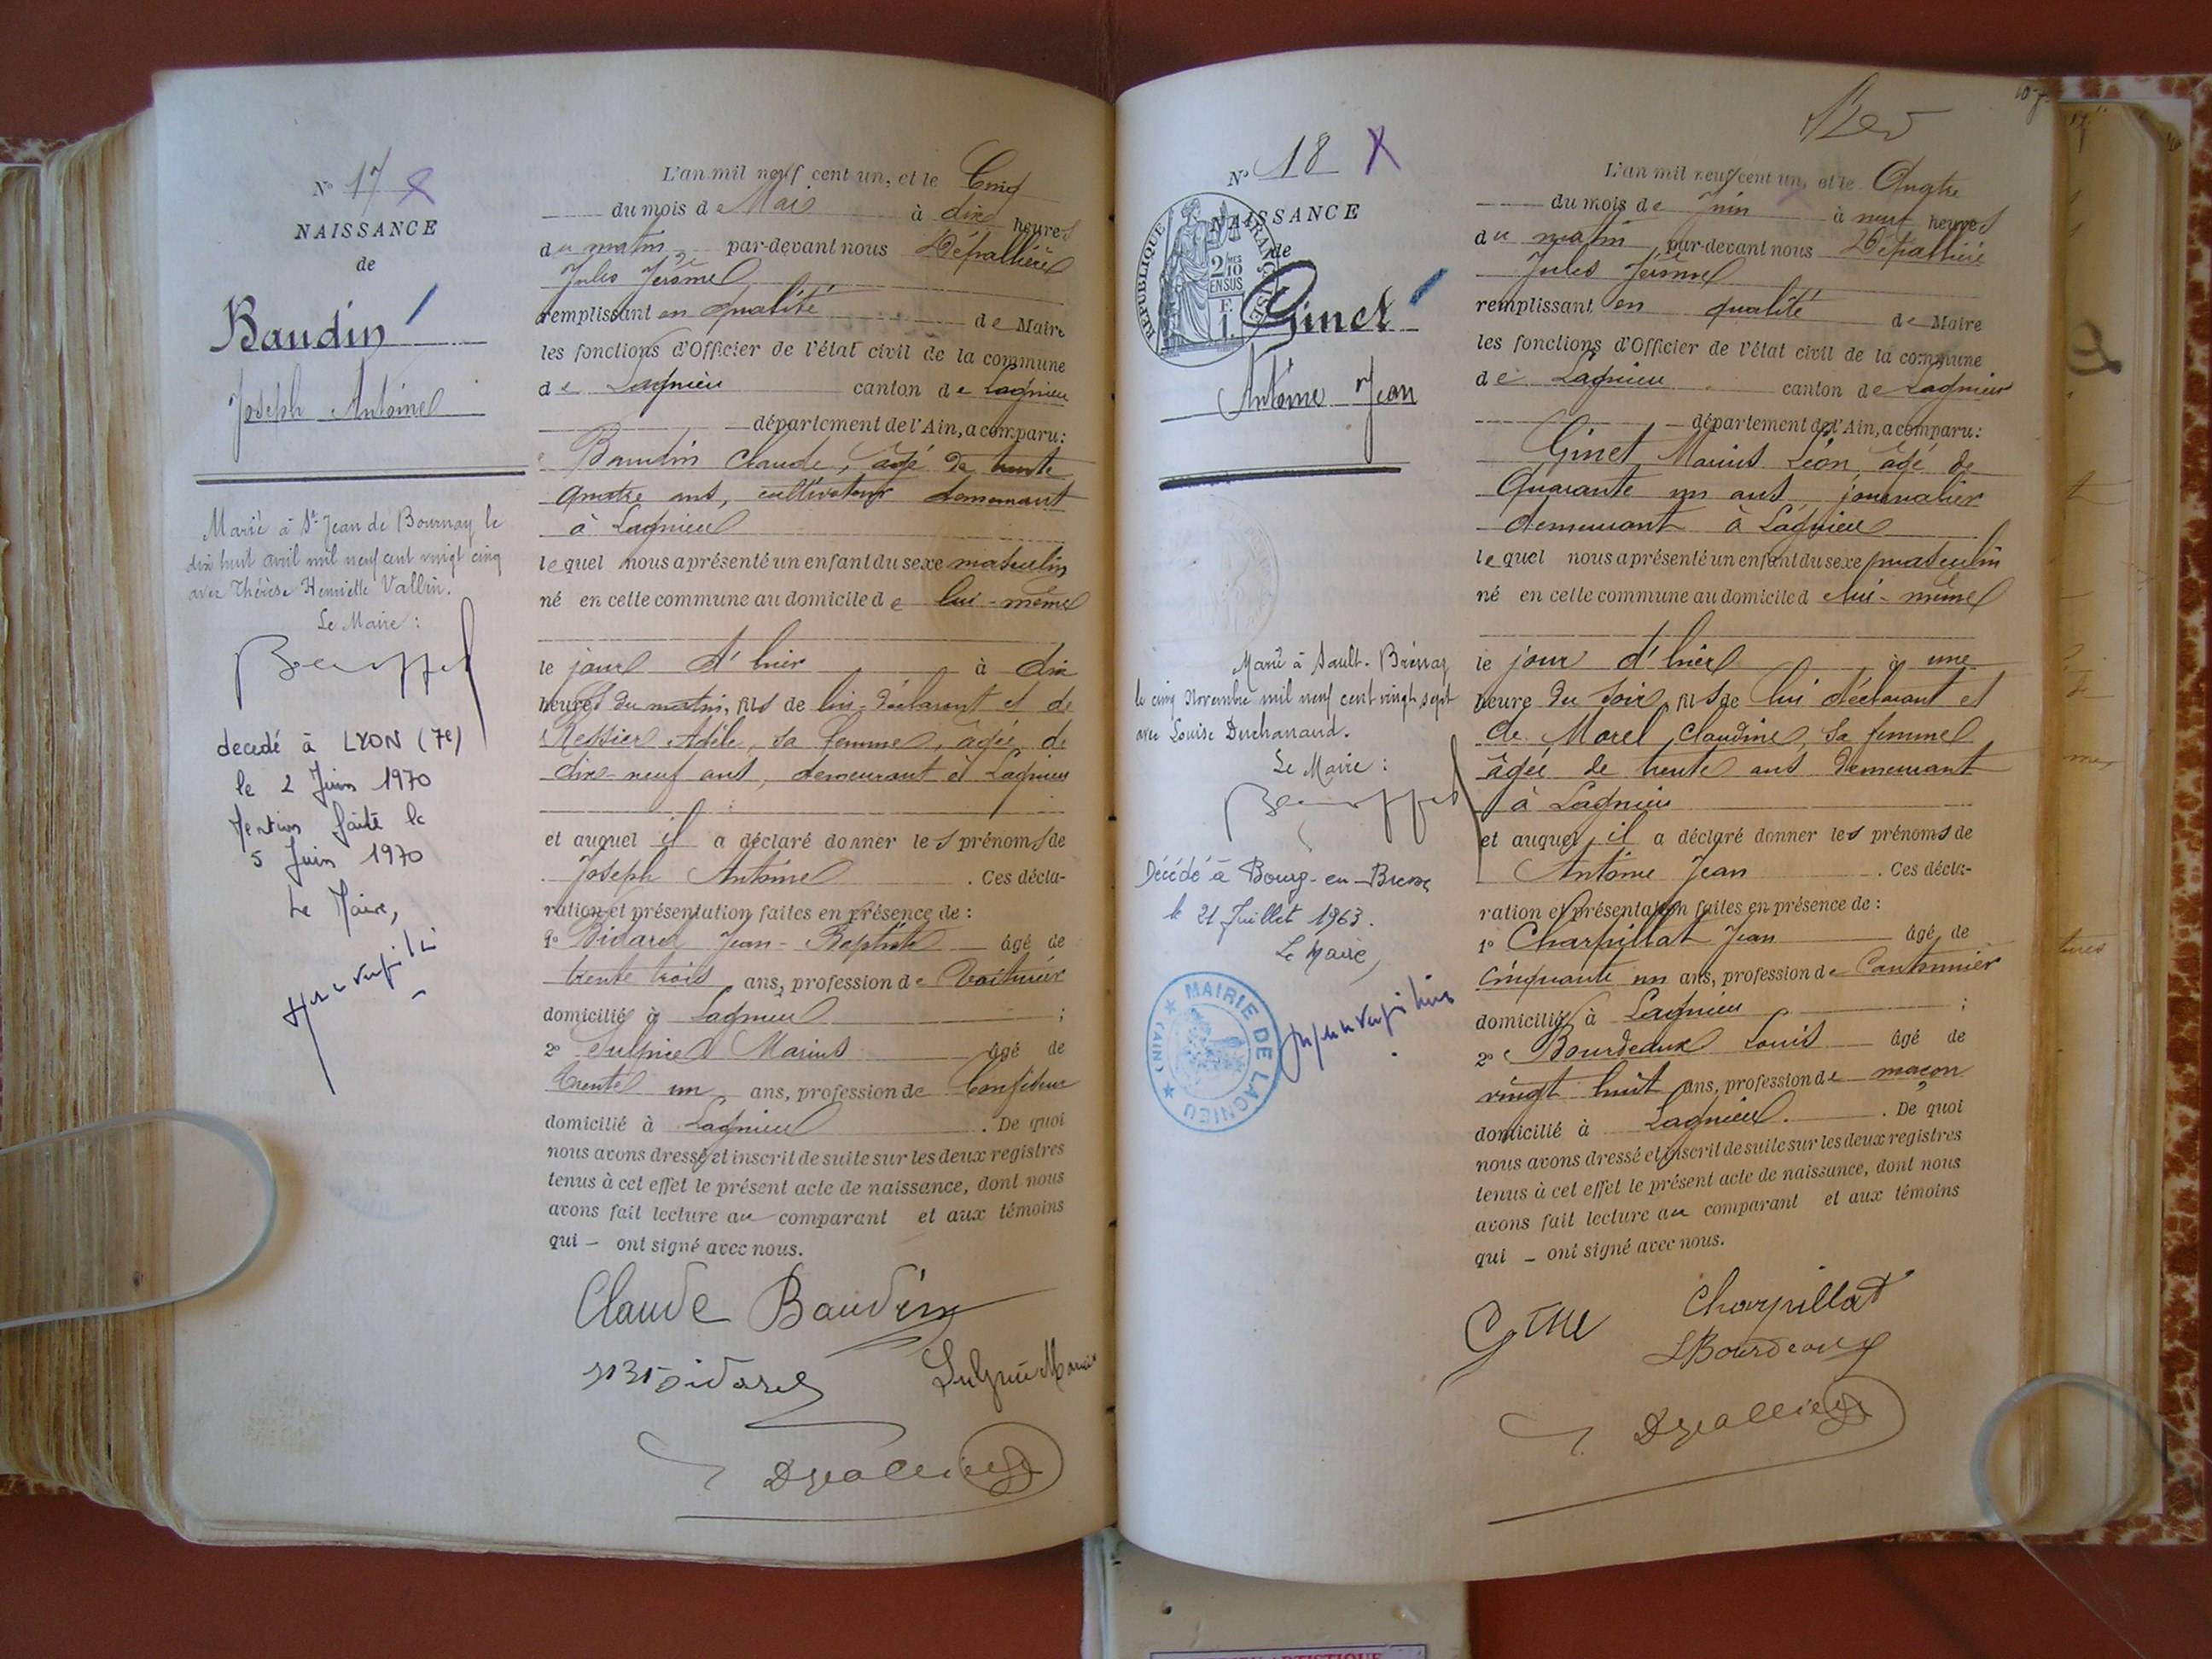 N° 17
NAISSANCE
de
Baudin
Joseph Antoine
Marié à St Jean de Bournay le
dix huit avril mil neuf cent vingt cinq
avec Thérèse Henriette Vallin.
Le Maire :
decedé à LYON (7e)
le 2 Juin 1970
Mention faite le
5 Juin 1970
Le Maire,
L'an mil neuf cent un, et le Cinq
du mois de Mai à dix heures
du matin par-devant nous Dépallière
Jules Jérôme
remplissant en qualité de Maire
les fonctions d'Officier de l'état civil de la commune
de Lagnieu canton de Lagnieu
département de l'Ain, a comparu :
Baudin Claude, âgé de trente
quatre ans, cultivateur demeurant
à Lagnieu
lequel nous a présenté un enfant du sexe masculin
né en cette commune au domicile de lui-même
le jour d'hier à dix
heures du matin, fils de lui déclarant et de
Messier Adèle, sa femme, âgée de
dix-neuf ans, demeurant à Lagnieu
et auquel il a déclaré donner les prénoms de
Joseph Antoine . Ces décla-
ration et présentation faites en présence de :
1° Bidarel Jean-Baptiste âgé de
trente trois ans, profession de Voiturier
domicilié à Lagnieu ;
2° Sulpice Marius âgé de
trente un ans, profession de Coiffeur
domicilié à Lagnieu . De quoi
nous avons dressé et inscrit de suite sur les deux registres
tenus à cet effet le présent acte de naissance, dont nous
avons fait lecture au comparant et aux témoins
qui ont signé avec nous.
Claude Baudin
N° 18 X
REPUBLIQUE FRANÇAISE
2/10 EN SUS
F.
1.
NAISSANCE
de
Ginet
Antoine Jean
Marié à Sault-Brénaz
le cinq Novembre mil neuf cent vingt sept
avec Louise Duchanaud.
Le Maire :
Décédé à Bourg-en-Bresse
le 21 Juillet 1963.
Le Maire,
MAIRIE DE LAGNIEU (AIN)
L'an mil neuf cent un, et le Quatre
du mois de Juin à neuf heures
du matin par-devant nous Dépallière
Jules Jérôme
remplissant en qualité de Maire
les fonctions d'Officier de l'état civil de la commune
de Lagnieu canton de Lagnieu
département de l'Ain, a comparu :
Ginet Marius Léon âgé de
Quarante un ans journalier
demeurant à Lagnieu
lequel nous a présenté un enfant du sexe masculin
né en cette commune au domicile de lui-même
le jour d'hier à une
heure du soir, fils de lui déclarant et
de Morel Claudine, sa femme
âgée de trente ans demeurant
à Lagnieu
et auquel il a déclaré donner les prénoms de
Antoine Jean . Ces décla-
ration et présentation faites en présence de :
1° Charpillat Jean âgé de
cinquante un ans, profession de Cantonnier
domicilié à Lagnieu ;
2° Bourdeaux Louis âgé de
vingt huit ans, profession de maçon
domicilié à Lagnieu . De quoi
nous avons dressé et inscrit de suite sur les deux registres
tenus à cet effet le présent acte de naissance, dont nous
avons fait lecture au comparant et aux témoins
qui ont signé avec nous.
Charpillat
LBourdeaux